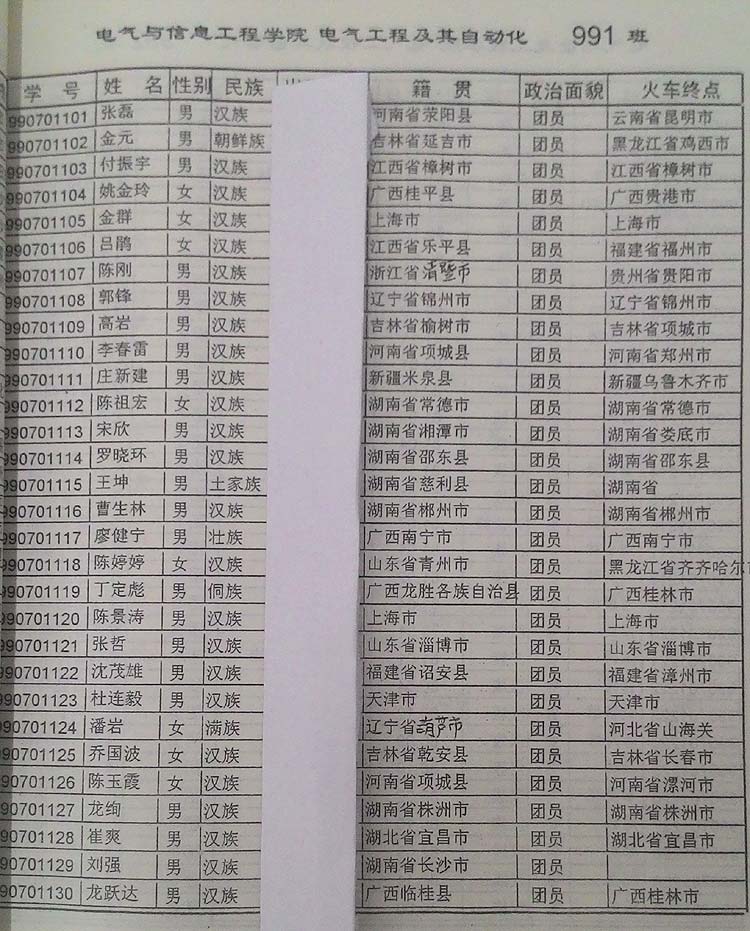 电气与信息工程学院 电气工程及其自动化 991 班
学 号 姓 名 性别 民族 籍 贯 政治面貌 火车终点
990701101 张磊 男 汉族 河南省荥阳县 团员 云南省昆明市
990701102 金元 男 朝鲜族 吉林省延吉市 团员 黑龙江省鸡西市
990701103 付振宇 男 汉族 江西省樟树市 团员 江西省樟树市
990701104 姚金玲 女 汉族 广西桂平县 团员 广西贵港市
990701105 金群 女 汉族 上海市 团员 上海市
990701106 吕鹃 女 汉族 江西省乐平县 团员 福建省福州市
990701107 陈刚 男 汉族 浙江省 团员 贵州省贵阳市
990701108 郭锋 男 汉族 辽宁省锦州市 团员 辽宁省锦州市
990701109 高岩 男 汉族 吉林省榆树市 团员 吉林省项城市
990701110 李春雷 男 汉族 河南省项城县 团员 河南省郑州市
990701111 庄新建 男 汉族 新疆米泉县 团员 新疆乌鲁木齐市
990701112 陈祖宏 女 汉族 湖南省常德市 团员 湖南省常德市
990701113 宋欣 男 汉族 湖南省湘潭市 团员 湖南省娄底市
990701114 罗晓环 男 汉族 湖南省邵东县 团员 湖南省邵东县
990701115 王坤 男 土家族 湖南省慈利县 团员 湖南省
990701116 曹生林 男 汉族 湖南省郴州市 团员 湖南省郴州市
990701117 廖健宁 男 壮族 广西南宁市 团员 广西南宁市
990701118 陈婷婷 女 汉族 山东省青州市 团员 黑龙江省齐齐哈尔
990701119 丁定彪 男 侗族 广西龙胜各族自治县 团员 广西桂林市
990701120 陈景涛 男 汉族 上海市 团员 上海市
990701121 张哲 男 汉族 山东省淄博市 团员 山东省淄博市
990701122 沈茂雄 男 汉族 福建省诏安县 团员 福建省漳州市
990701123 杜连毅 男 汉族 天津市 团员 天津市
990701124 潘岩 女 满族 辽宁省葫芦市 团员 河北省山海关
990701125 乔国波 女 汉族 吉林省乾安县 团员 吉林省长春市
990701126 陈玉霞 女 汉族 河南省项城县 团员 河南省漯河市
990701127 龙绚 男 汉族 湖南省株洲市 团员 湖南省株洲市
990701128 崔爽 男 汉族 湖北省宜昌市 团员 湖北省宜昌市
990701129 刘强 男 汉族 湖南省长沙市 团员
990701130 龙跃达 男 汉族 广西临桂县 团员 广西桂林市